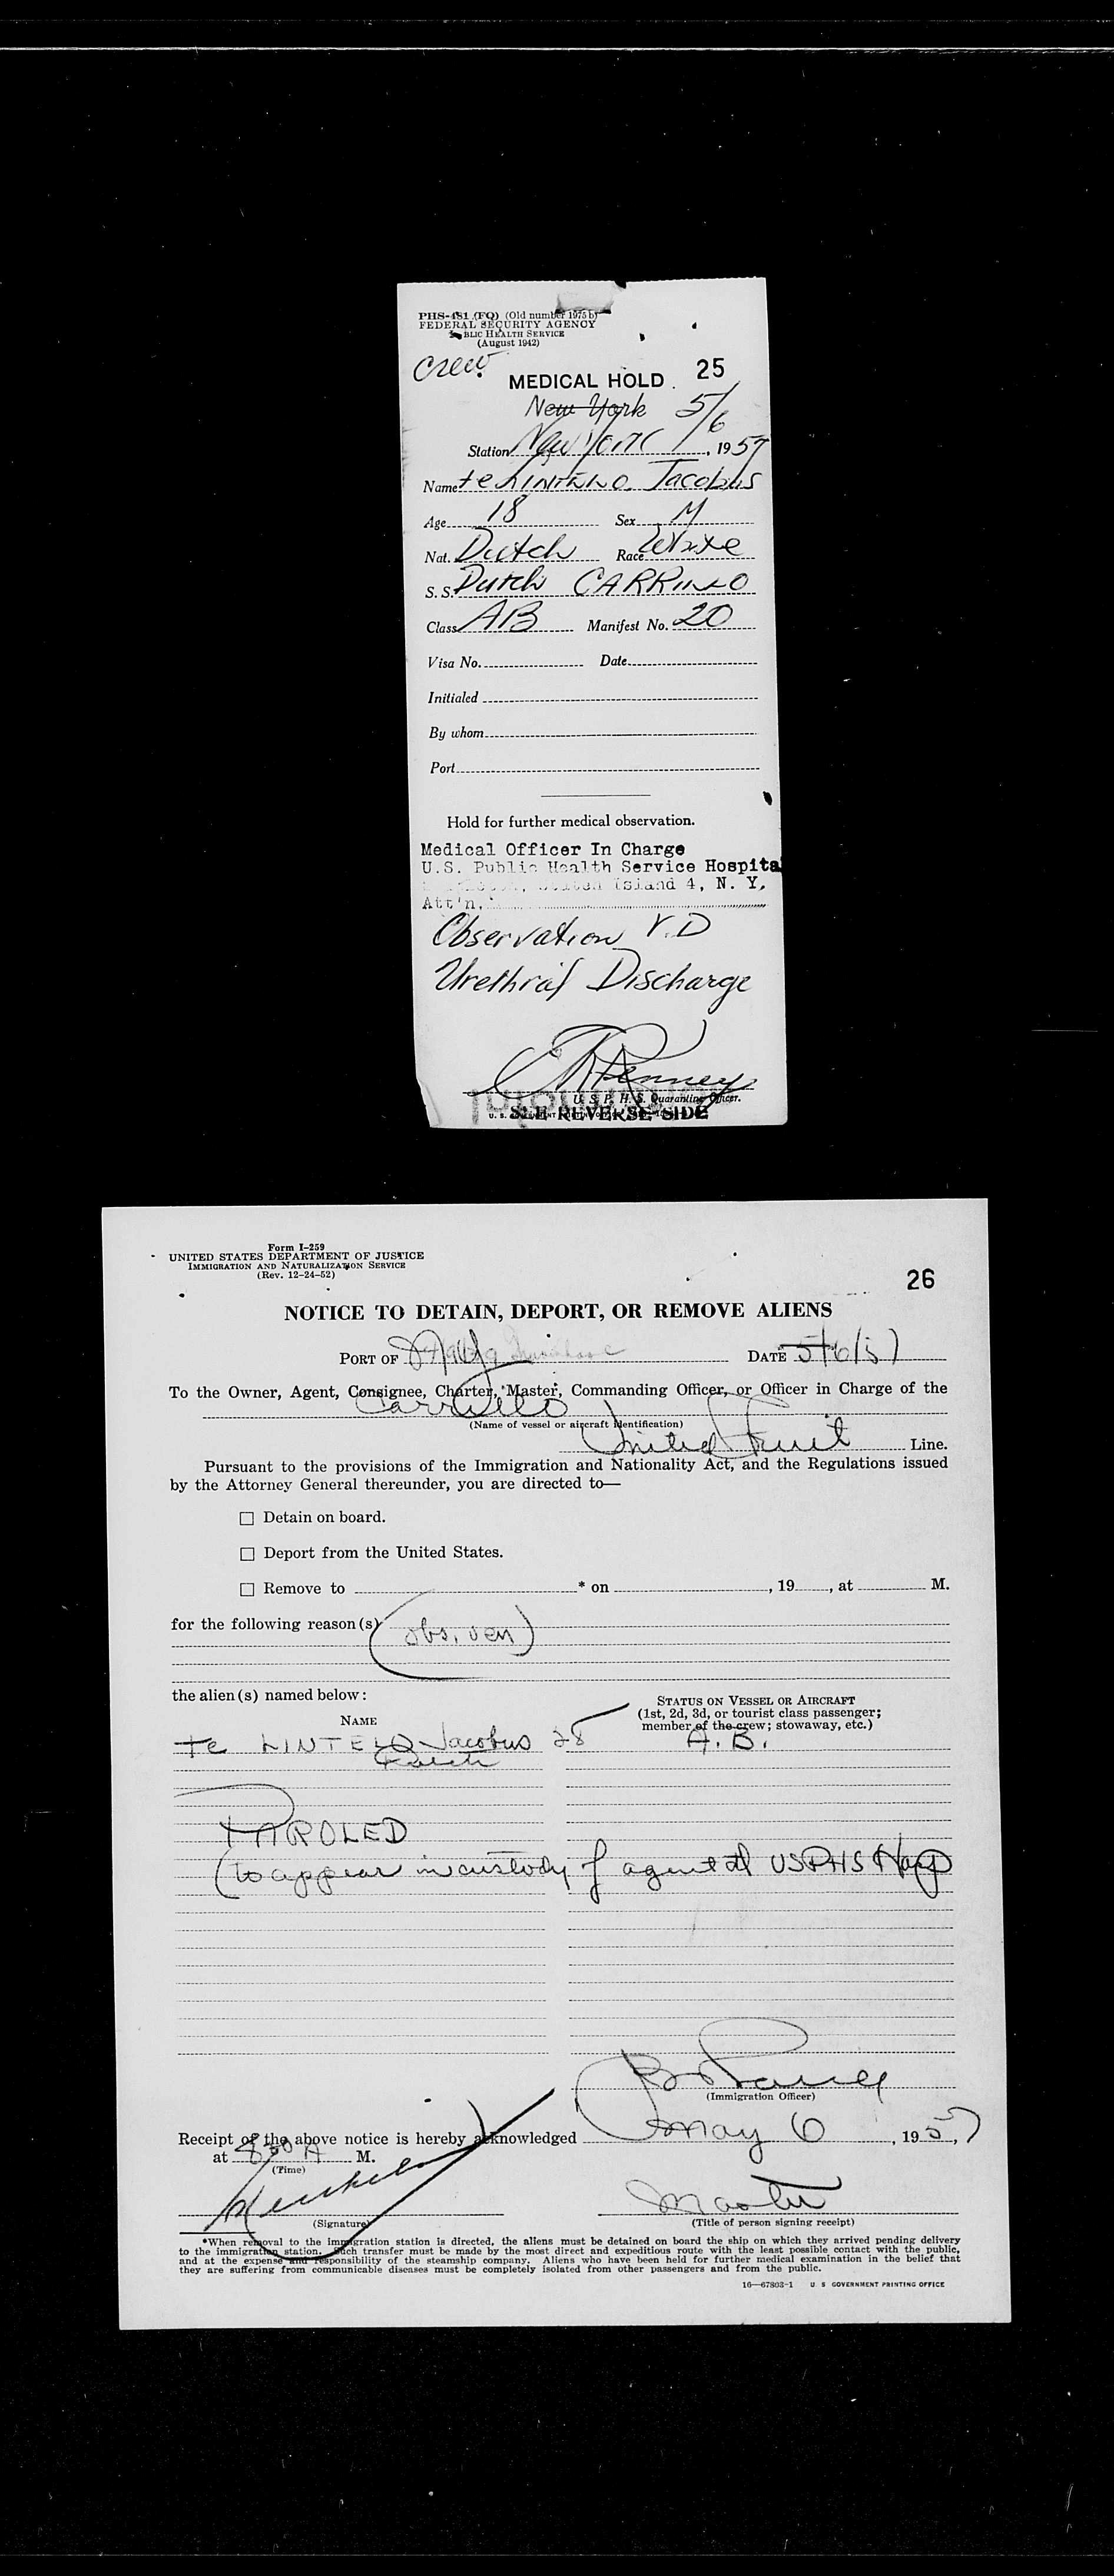 PHS-481 (FQ) (Old number 1975b)
FEDERAL SECURITY AGENCY
PUBLIC HEALTH SERVICE
(August 1942)
Crew
MEDICAL HOLD 25
New York 5/6
Station New York, 1957
Name te Jacobus
Age 18 Sex M
Nat. Dutch Race White
S. S. Dutch CARRILLO
Class AB Manifest No. 20
Visa No. Date
Initialed
By whom
Port
Hold for further medical observation.
Medical Officer In Charge
U.S. Public Health Service Hospital
Staten Island 4, N. Y.
Att'n.
Observation V.D
Urethral Discharge
Penney
U. S. P. H. S. Quarantine Officer.
SEE REVERSE SIDE
Form I-259
UNITED STATES DEPARTMENT OF JUSTICE
IMMIGRATION AND NATURALIZATION SERVICE
(Rev. 12-24-52)
26
NOTICE TO DETAIN, DEPORT, OR REMOVE ALIENS
PORT OF DATE 5/6/57
To the Owner, Agent, Consignee, Charter, Master, Commanding Officer, or Officer in Charge of the
Carrillo
(Name of vessel or aircraft identification)
United Fruit Line.
Pursuant to the provisions of the Immigration and Nationality Act, and the Regulations issued
by the Attorney General thereunder, you are directed to—
☐ Detain on board.
☐ Deport from the United States.
☐ Remove to * on , 19 , at M.
for the following reason(s) (obs. ven)
the alien(s) named below:
STATUS ON VESSEL OR AIRCRAFT
(1st, 2d, 3d, or tourist class passenger;
member of the crew; stowaway, etc.)
NAME
te LINTELO Jacobus 28 A. B.
Dutch
PAROLED
(to appear in custody of agent at USPHS Hosp
(Immigration Officer)
Receipt of the above notice is hereby acknowledged May 6, 1957
at 8 30 A M.
(Time)
Master
(Signature) (Title of person signing receipt)
*When removal to the immigration station is directed, the aliens must be detained on board the ship on which they arrived pending delivery
to the immigration station. Such transfer must be made by the most direct and expeditious route with the least possible contact with the public,
and at the expense and responsibility of the steamship company. Aliens who have been held for further medical examination in the belief that
they are suffering from communicable diseases must be completely isolated from other passengers and from the public.
16—67803-1 U S GOVERNMENT PRINTING OFFICE